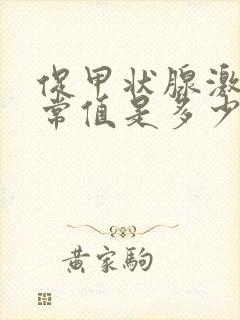 促甲状腺激
常值是多少
黄家驹